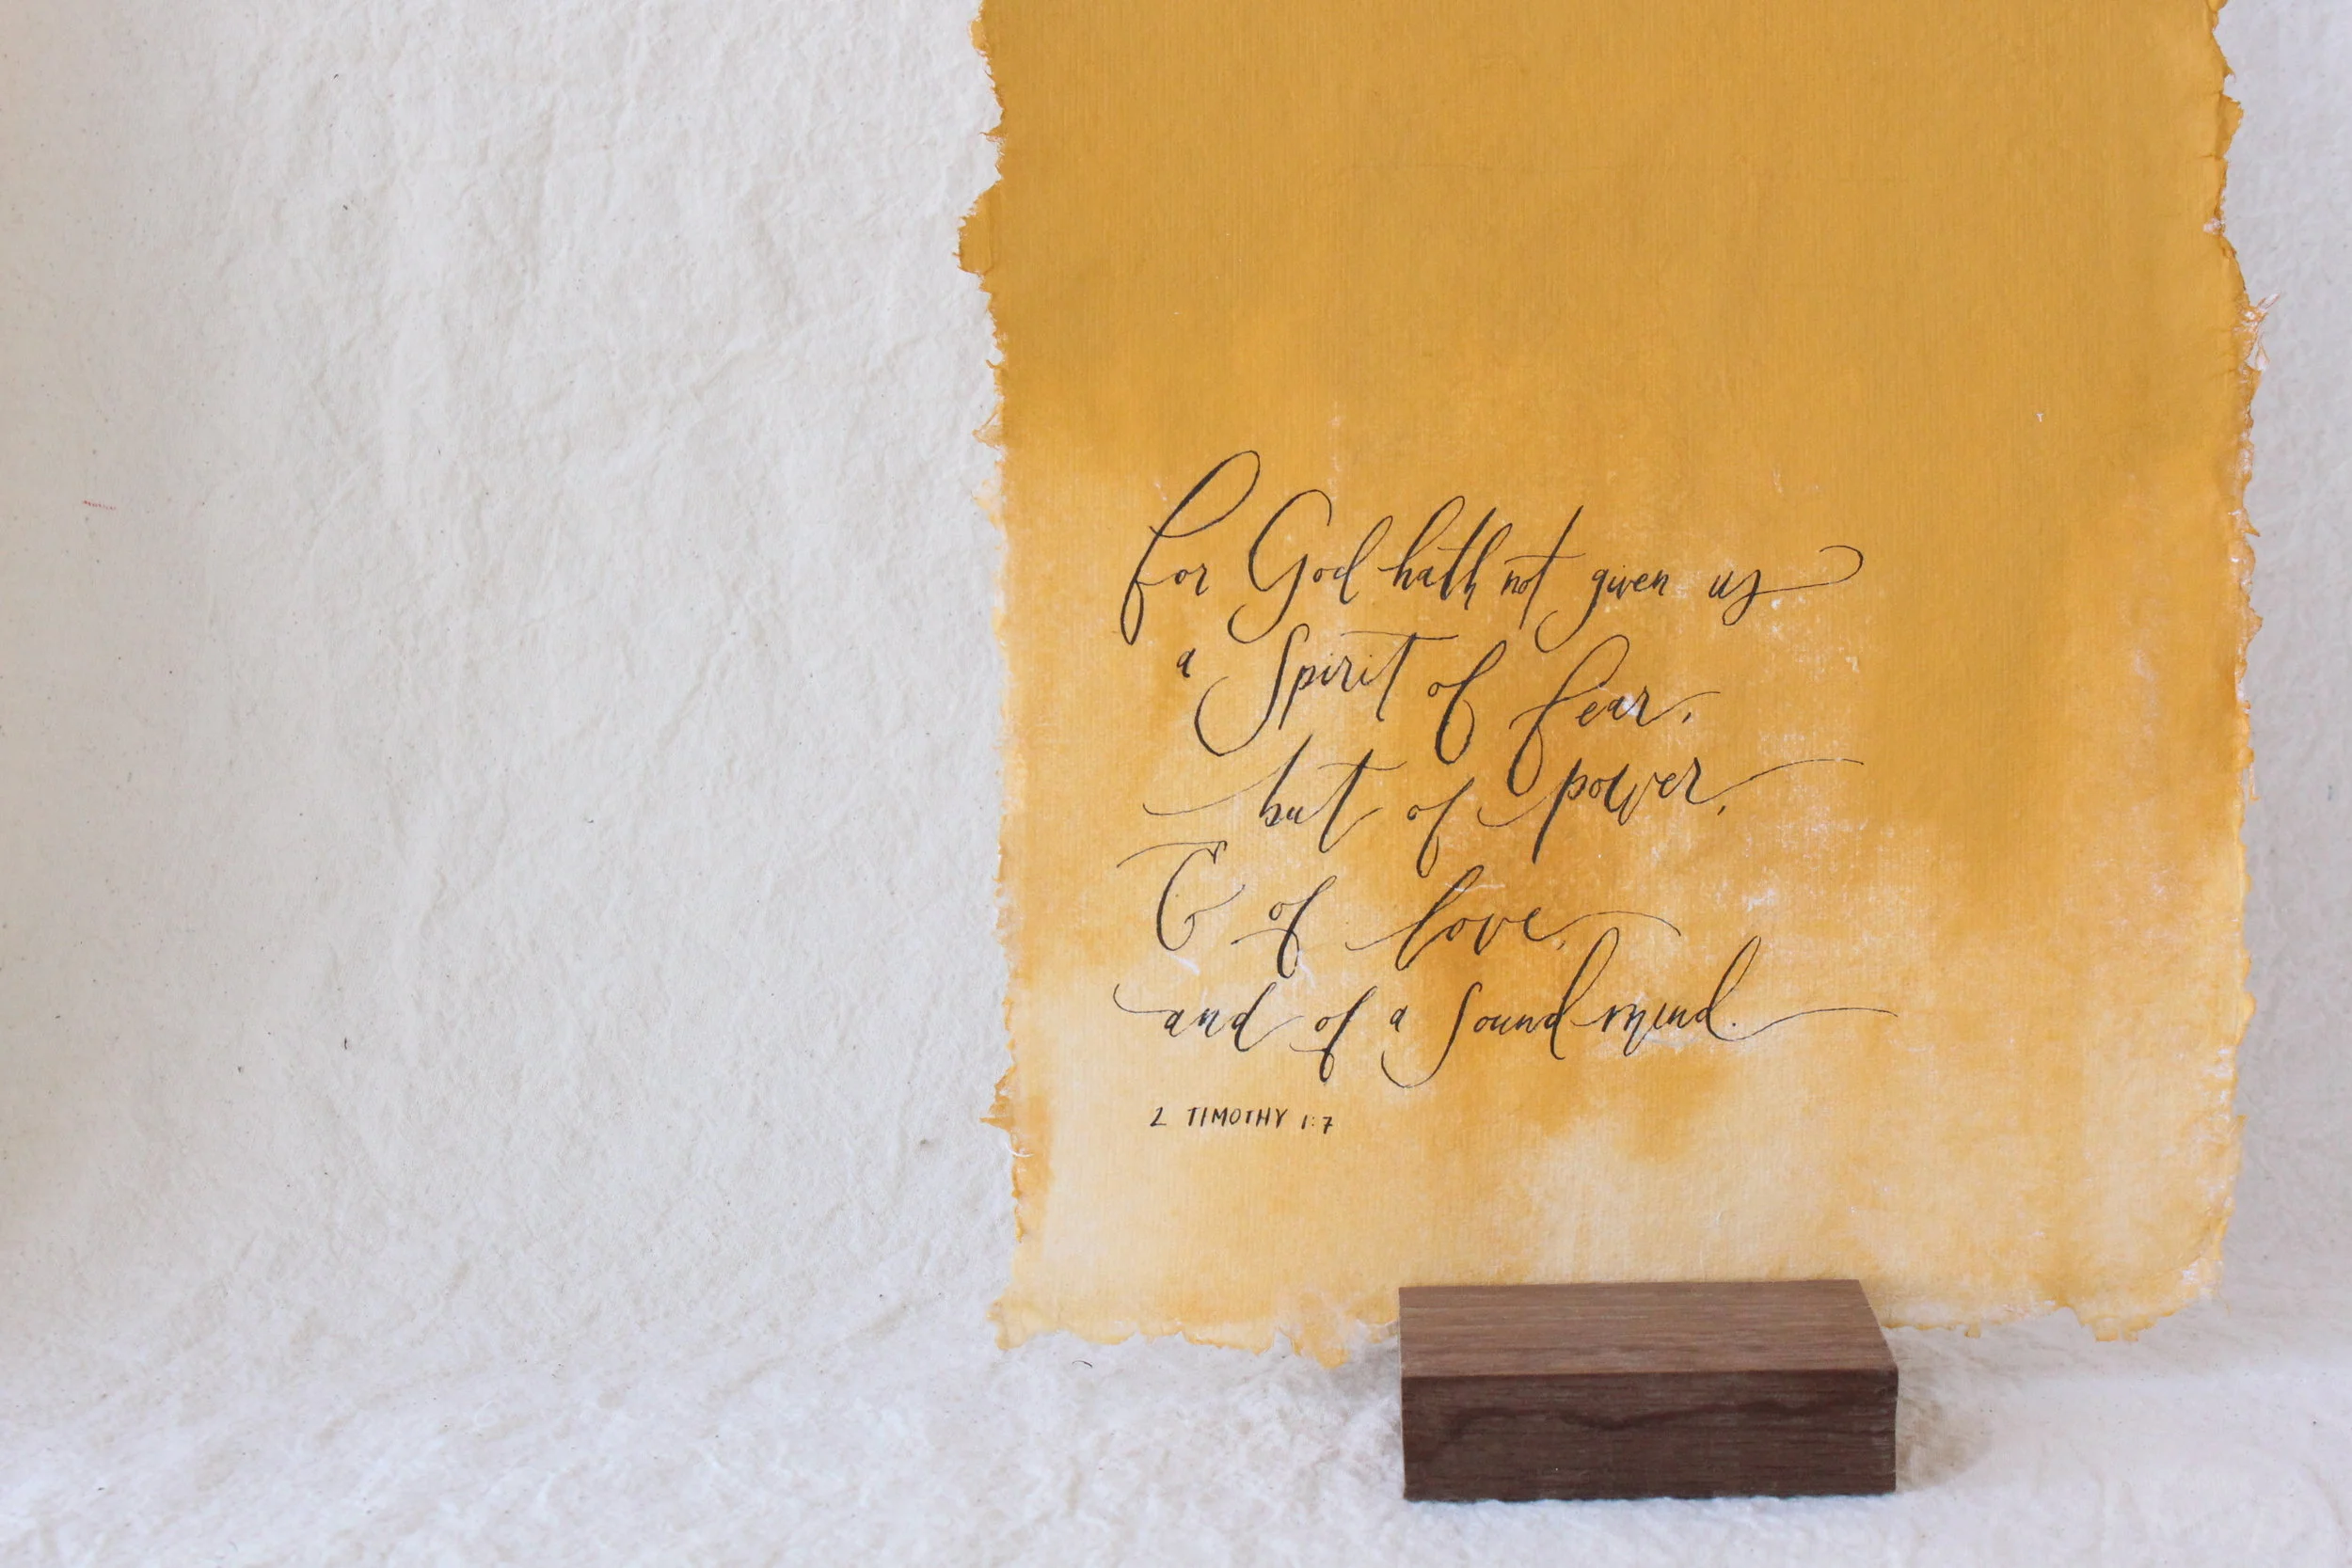 For God hath not given us
a Spirit of fear,
but of power,
& of love,
and of a sound mind.
2 TIMOTHY 1:7